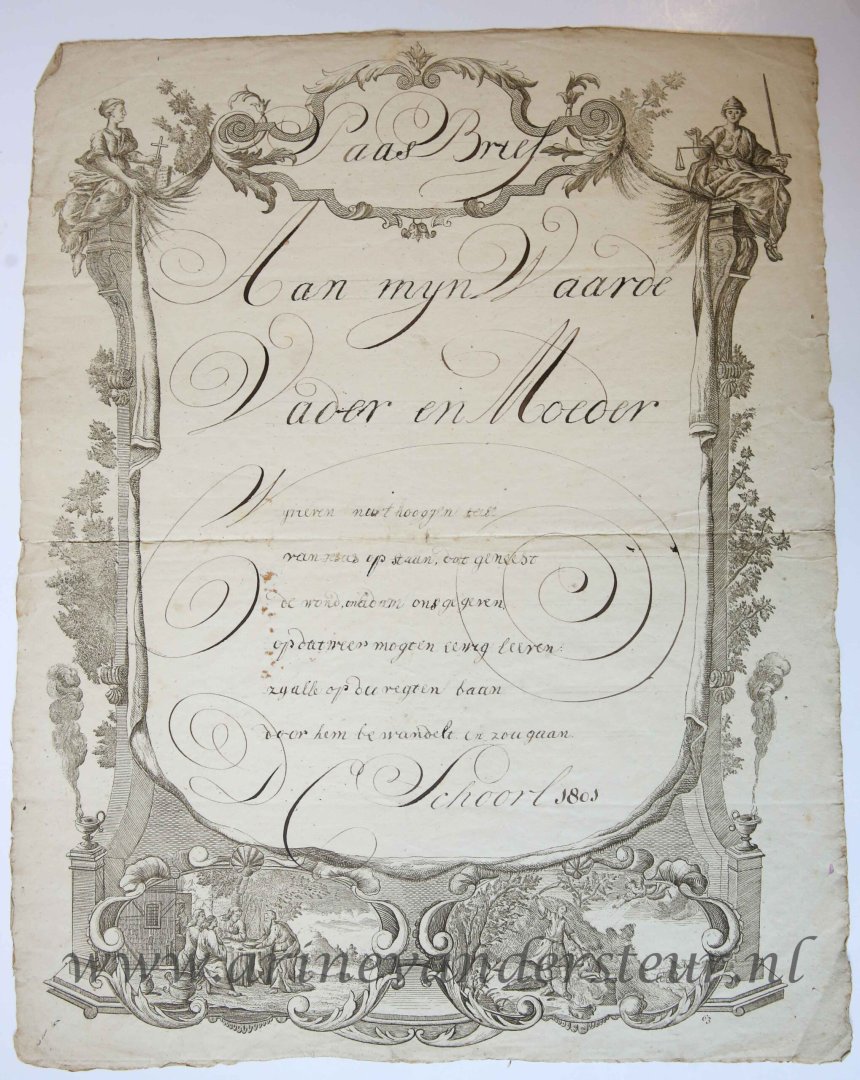 Paas Brief
Aan myn Waarde
Vader en Moeder
Wy vieren nu 't hoogen
van op staan, dat geneest
de wond, ons gegeven,
op dat wier mogten eewig leeven:
zy alle op du regten baan
door hem be wandelt en zou gaan.
D C Schoorl 1801
www.arinevandersteur.nl
63